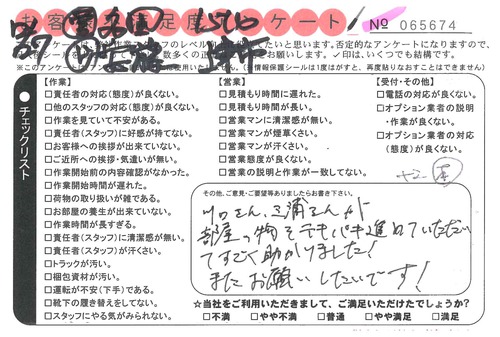 お客様満足度アンケート!
№ 065674
※このアンケートは
(※情報保護シールは1度がすと、再度貼りなおすことはできません)
チェックリスト
【作業】
□責任者の対応(態度)が良くない。
□他のスタッフの対応(態度)が良くない。
□作業を見ていて不安がある。
□責任者(スタッフ)に好感が持てない。
□お客様への挨拶が出来ていない。
□ご近所への挨拶・気遣いが無い。
□作業開始前の内容確認がなかった。
□作業開始時間が遅れた。
□荷物の取り扱いが雑である。
□お部屋の養生が出来ていない。
□作業時間が長すぎる。
□責任者(スタッフ)に清潔感が無い。
□責任者(スタッフ)が汗くさい。
□トラックが汚い。
□梱包資材が汚い。
□運転が不安(下手)である。
□靴下の履き替えをしてない。
□スタッフにやる気がみられない。
【営業】
□見積もり時間に遅れた。
□見積もり時間が長い。
□営業マンに清潔感が無い。
□営業マンが煙草くさい。
□営業マンが汗くさい。
□営業態度が良くない。
□営業の説明と作業が一致してない。
【受付・その他】
□電話の対応が良くない。
□オプション業者の説明
・作業が良くない。
□オプション業者の対応
(態度)が良くない。
その他、ご意見・ご要望等ありましたらお書き下さい。
川口さん、三浦さんが
部屋の物をテキパキ進めていただい
てすごく助かりました!
またお願いしたいです!
☆当社をご利用いただきまして、ご満足いただけたでしょうか?
□不満 □やや不満 □普通 □やや満足 □満足